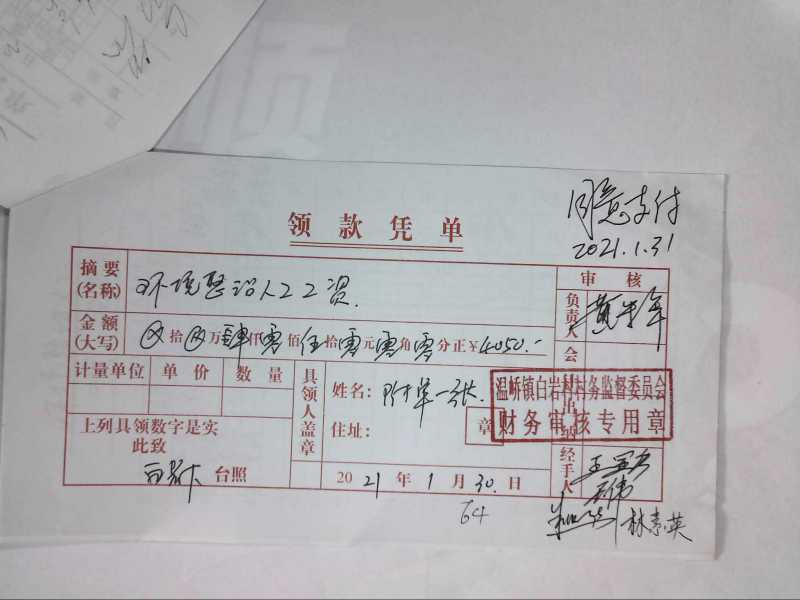 同意支付
2021.1.31
领款凭单
摘要(名称) 环境整治人工工资. 审核
金额(大写) ⊗拾⊗万肆仟零佰伍拾零元零角零分正¥4050.- 负责人
会
计量单位 单价 数量 具领人盖章 姓名: 附单一张. 住址: 章
温峤镇白岩村村务监督委员会
财务审核专用章
出纳
上列具领数字是实
此致
台照
2021年1月30.日
经手人
64
林素英